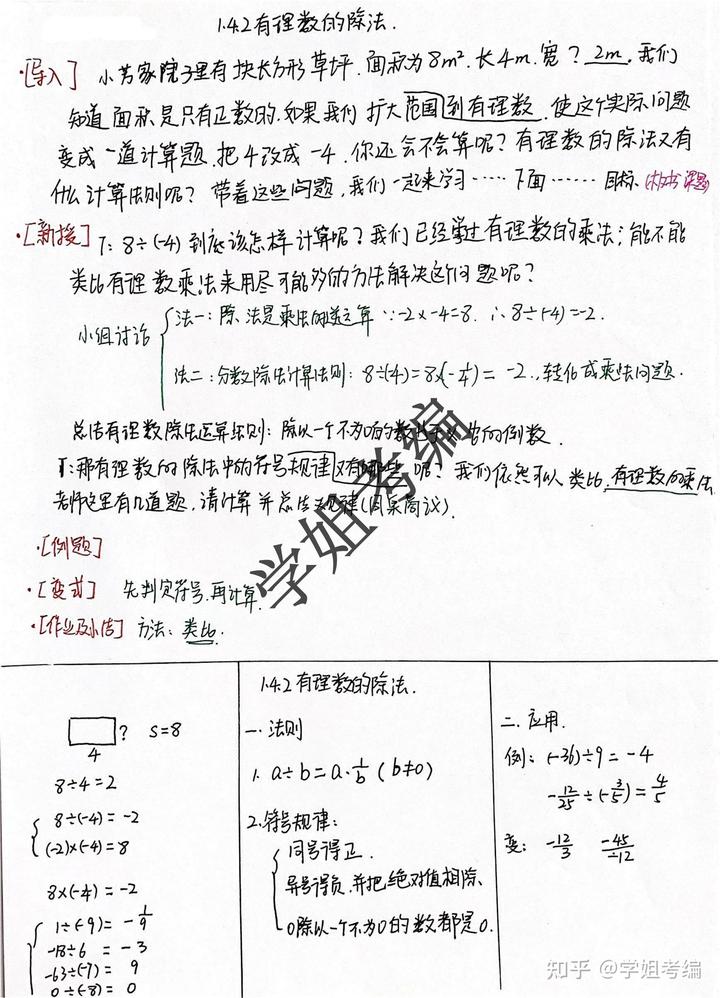 1.4.2有理数的除法.
·[导入] 小芳家院子里有块长方形草坪.面积为8m².长4m.宽？2m,我们
知道面积是只有正数的.如果我们扩大范围到有理数.使这个实际问题
变成一道计算题.把4改成-4.你还会不会算呢？有理数的除法又有
什么计算法则呢？带着这些问题,我们一起来学习……下面……目标.(板书课题)
·[新授] T: 8÷(-4)到底该怎样计算呢？我们已经学过有理数的乘法;能不能
类比有理数乘法来用尽可能多的方法解决这个问题呢？
小组讨论
法一:除法是乘法的逆运算 ∵-2×-4=8. ∴8÷(-4)=-2.
法二:分数除法计算法则: 8÷(-4)=8×(-1/4)= -2.,转化成乘法问题.
总结有理数除法运算法则: 除以一个不为0的数 的倒数.
T:那有理数的除法中的符号规律又有哪些呢？我们依然可以类比,有理数的乘法.
老师这里有几道题,请计算并总结规律(同桌商议).
·[例题]
·[变式] 先判定符号.再计算.
·[作业及小结] 方法: 类比.
学姐考编
? S=8
4
8÷4=2
8÷(-4)= -2
(-2)×(-4)=8
8×(-1/4)=-2
1÷(-9)= -1/9
-18÷6 = -3
-63÷(-7)= 9
0÷(-8)= 0
1.4.2有理数的除法.
一.法则
1. a÷b=a·1/b (b≠0)
2.符号规律:
同号得正.
异号得负.并把绝对值相除.
0除以一个不为0的数都是0.
二.应用.
例: (-36)÷9=-4
-12/25÷(-3/5)=4/5
变: -12/3 -45/-12
知乎 @学姐考编